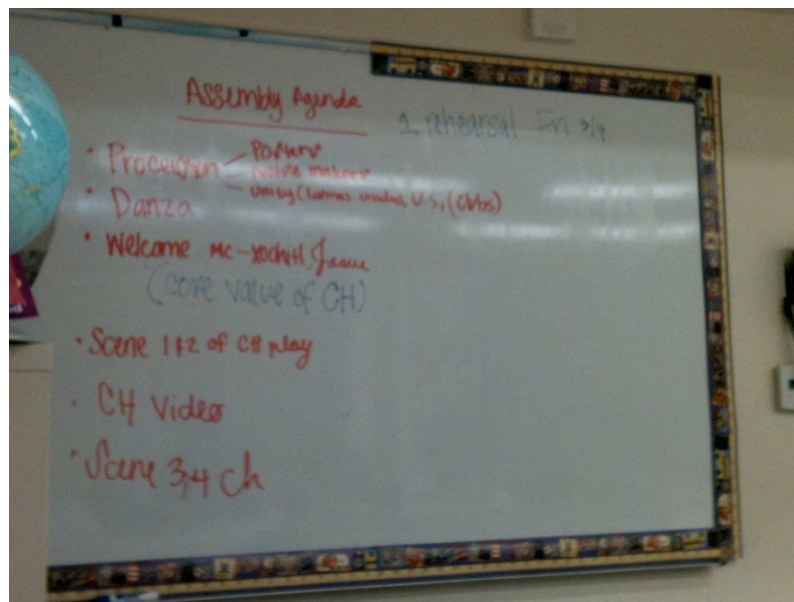 Assembly Agenda
1 rehearsal Fri 3/9
• Procession - Posters
- Noise makers
- Unity (Latinas unidas, U.S, (Clubs)
• Danza
• Welcome MC - Xochitl, Josue
(core value of CH)
• Scene 1 & 2 of CH play
• CH Video
• Scene 3,4 Ch